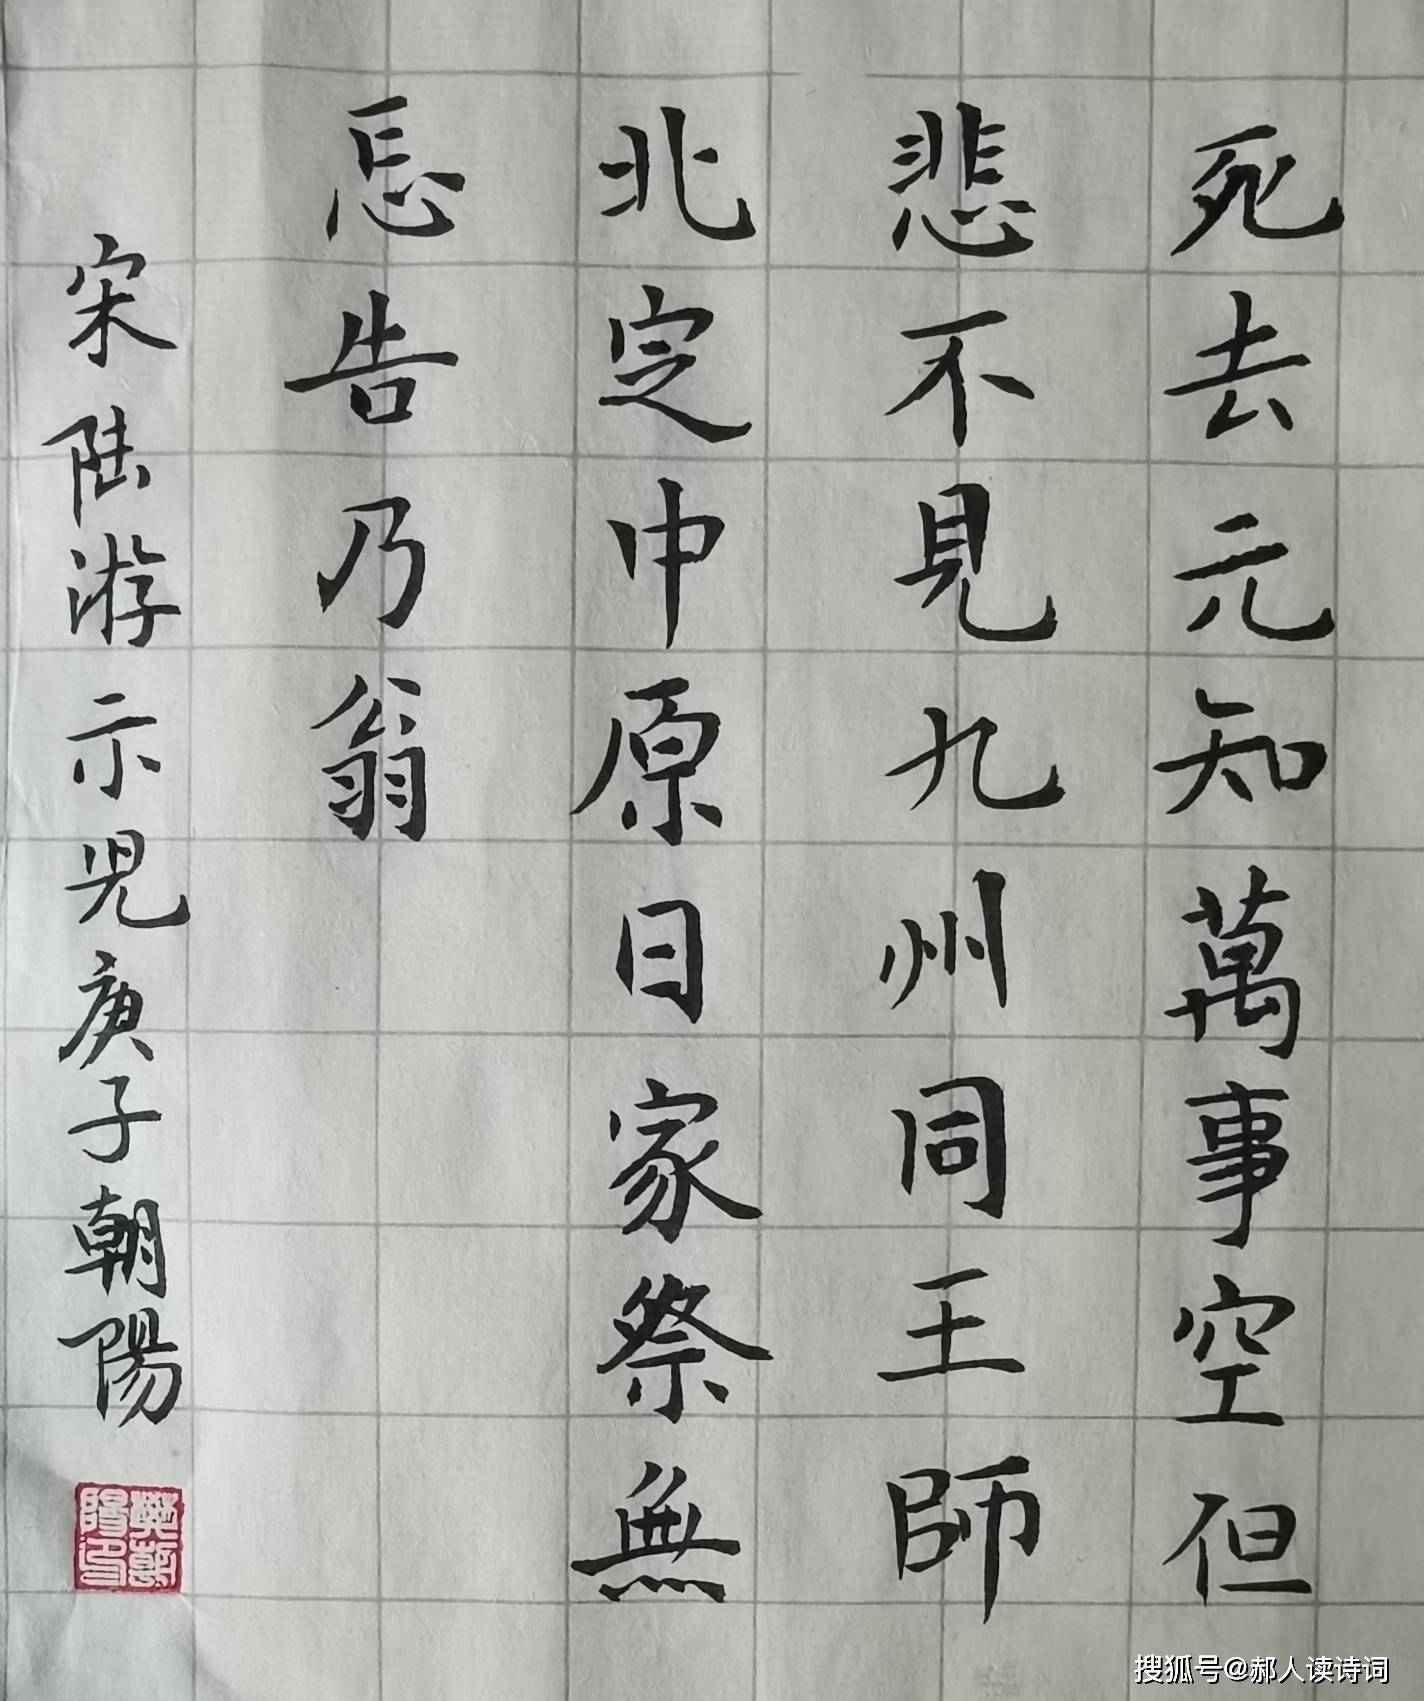 死去元知萬事空但
悲不見九州同王師
北定中原日家祭無
忘告乃翁
宋陸游示兒庚子朝陽
樊朝陽印
搜狐号@郝人读诗词